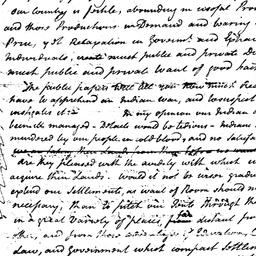 our Country is fertile, abounding in useful Prod
and those Productions in Demand and bearing a
Price, yet Relaxation in Governmt. and Extrava
Individuals, create much public and private De
much public and private want of good fait
The public papers will tell you how much Rea
have to apprehend an Indian war, and to suspect
instigates it — In my opinion our Indian a
been ill managed — Details would be tedious — Indian
murdered by our people in cold blood, and no satisfa
are they pleased with the avidity with which we
acquire their Lands. Would it not be wiser gradu
extend our Settlements, as want of Room should m
necessary, than to pitch our Tents through the
in a great Variety of places, far distant from
other, and from those advantages of Education,
Law, and Government which compact Settlem